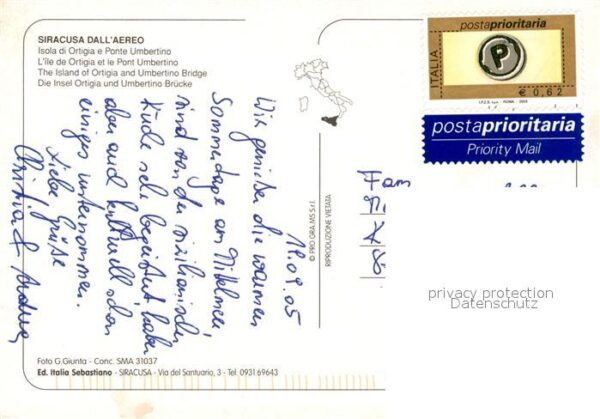 SIRACUSA DALL'AEREO
Isola di Ortigia e Ponte Umbertino
L'île de Ortigia et le Pont Umbertino
The Island of Ortigia and Umbertino Bridge
Die Insel Ortigia und Umbertino Brücke
18.09.05
Wir genießen die warmen
Sommertage am Mittelmeer,
sind von der sizilianischen
Küche sehr begeistert, haben
aber auch kulturell schon
einiges unternommen.
Liebe Grüße
Christia &
© PRO GRA MS S.r.l.
RIPRODUZIONE VIETATA
Foto G.Giunta - Conc. SMA 31037
Ed. Italia Sebastiano - SIRACUSA - Via del Santuario, 3 - Tel. 0931 69643
postaprioritaria
ITALIA
P
€ 0,62
I.P.Z.S. S.p.A. - ROMA
postaprioritaria
Priority Mail
Fam
privacy protection
Datenschutz